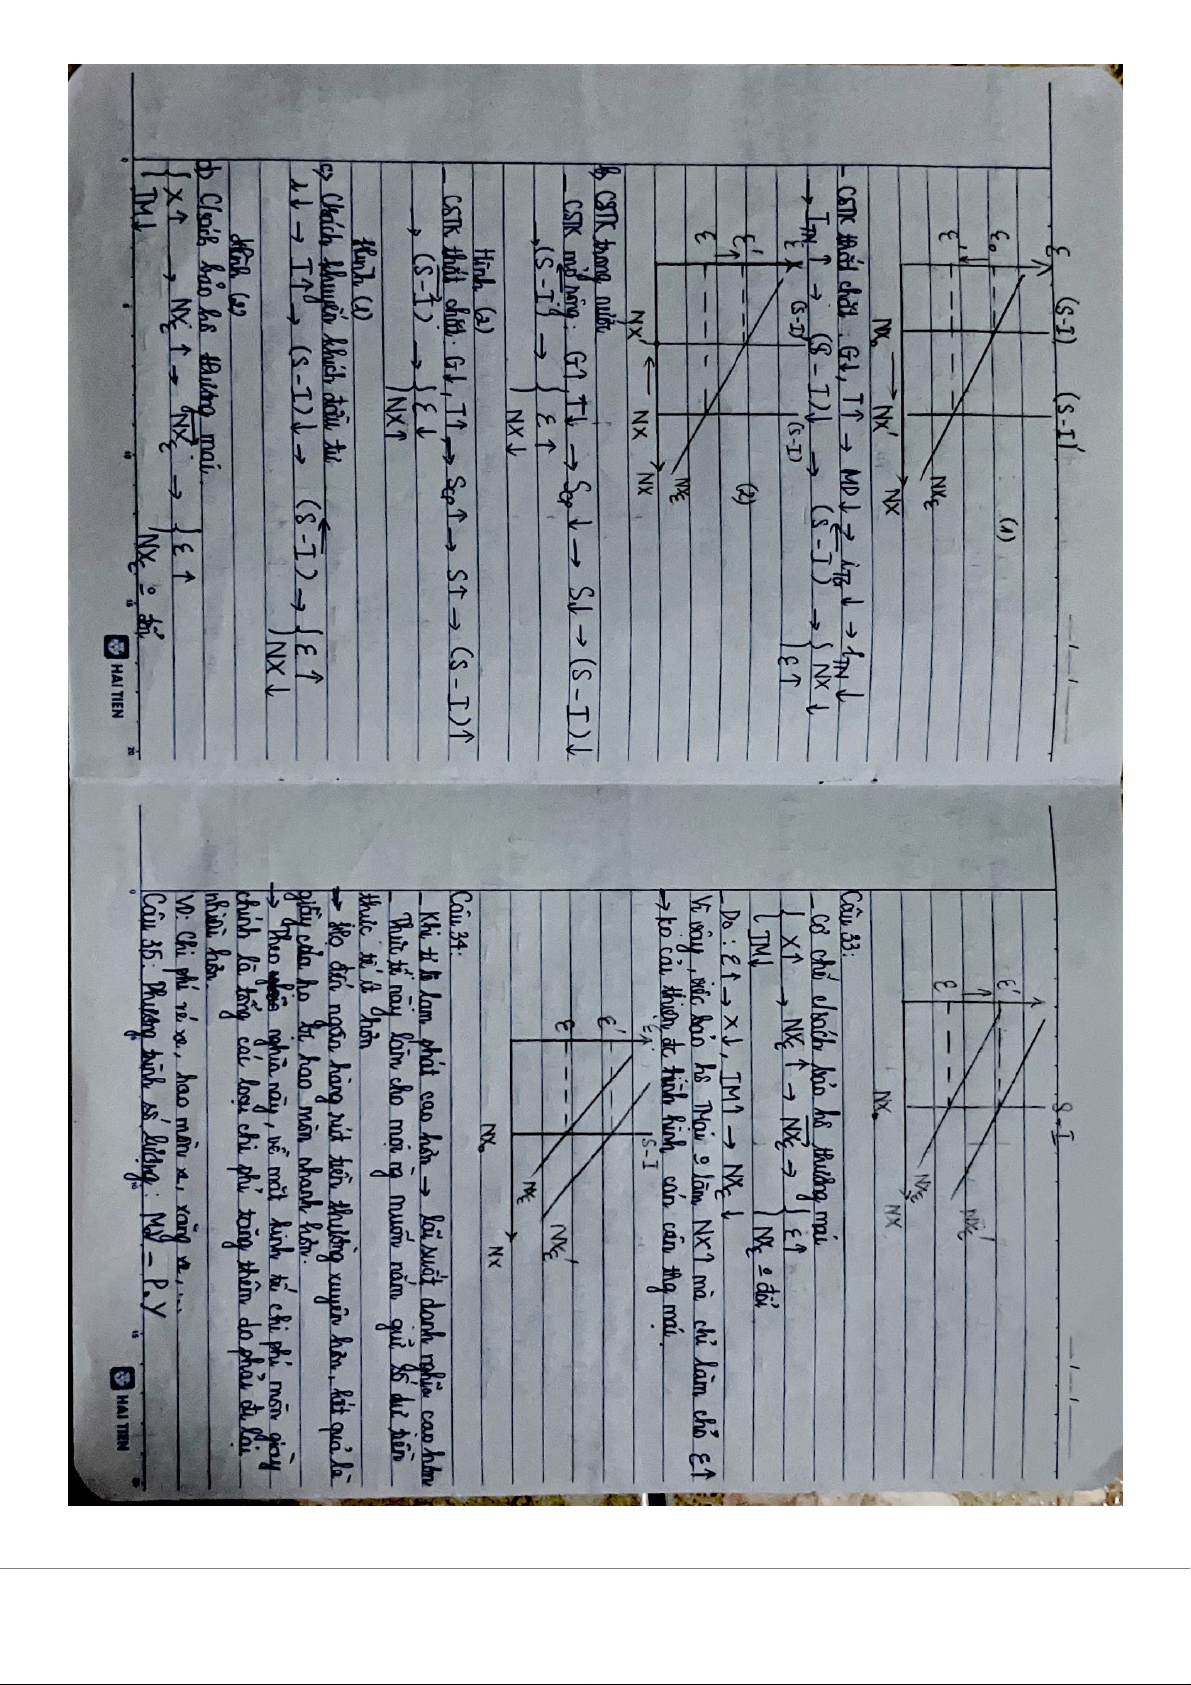 ε
(S-I)
(S-I)'
(1)
ε₀
ε'
NXε
NX₀ → NX'
NX
- CSTK thắt chặt: G↓, T↑ → MD↓ → iTG↓ → rTN↓
→ ITN↑ → (S-I)↓ → (S-I) → { NX↓
{ ε↑
ε
(S-I)'
(S-I)
(2)
ε'
ε
NXε
NX' ← NX
NX
b, CSTK trong nước
- CSTK mở rộng: G↑, T↓ → Scp↓ → S↓ → (S-I)↓
→ (S-I) → { ε↑
{ NX↓
Hình (2)
- CSTK thắt chặt: G↓, T↑ → Scp↑ → S↑ → (S-I)↑
→ (S-I) → { ε↓
{ NX↑
Hình (1)
c, Chsách khuyến khích đầu tư
r↓ → I↑ → (S-I)↓ → (S-I) → { ε↑
{ NX↓
Hình (2)
d, Chsách bảo hộ thương mại.
{ X↑ → NXε↑ → NXε → { ε↑
{ IM↓
{ NXε o đổi
HAI TIEN
S-I
ε'
ε
NXε
NXε'
NX₀
NX
Câu 33:
- Cơ chế chsách bảo hộ thương mại
{ X↑ → NXε↑ → NXε → { ε↑
{ IM↓
{ NXε o đổi
- Do: ε↑ → X↓, IM↑ → NXε↓
Vì vậy, việc bảo hộ TMại o làm NX↑ mà chỉ làm cho ε↑
→ ko cải thiện đc tình hình cán cân thg mại.
ε
S-I
ε'
ε
NXε
NXε'
NX₀
NX
Câu 34:
- Khi tỉ lệ lạm phát cao hơn → lãi suất danh nghĩa cao hơn
- Thực tế này làm cho mọi ng muốn nắm giữ số dư tiền
thực tế ít hơn
→ Họ đến ngân hàng rút tiền thường xuyên hơn, kết quả là
giầy của họ bị hao mòn nhanh hơn.
→ Theo nghĩa này, về mặt kinh tế chi phí mòn giày
chính là tổng các loại chi phí tăng thêm do phải đi lại
nhiều hơn.
VD: Chi phí vé xe, hao mòn xe, xăng xe, ...
Câu 35: Phương trình số lượng: MV = P.Y
HAI TIEN